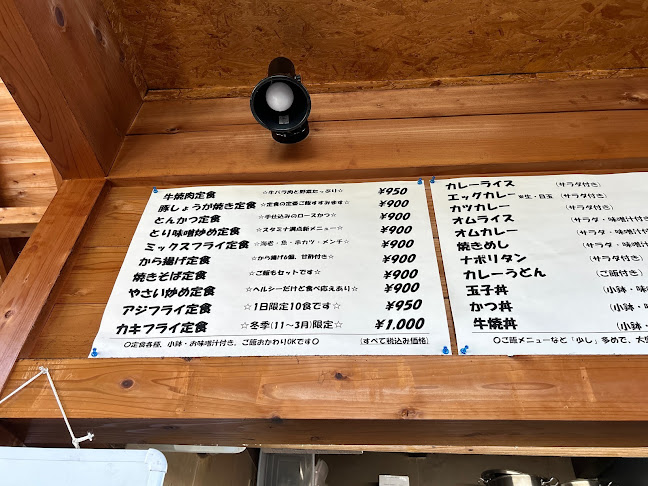 牛焼肉定食 ☆牛バラ肉と野菜たっぷり☆ ¥950
豚しょうが焼き定食 ☆定食の定番ご飯すすみます☆ ¥900
とんかつ定食 ☆手仕込みのロースかつ☆ ¥900
とり味噌炒め定食 ☆スタミナ満点新メニュー☆ ¥900
ミックスフライ定食 ☆海老・魚・串カツ・メンチ☆ ¥900
から揚げ定食 ☆から揚げ6個、甘酢付き☆ ¥900
焼きそば定食 ☆ご飯もセットです☆ ¥900
やさい炒め定食 ☆ヘルシーだけど食べ応えあり☆ ¥900
アジフライ定食 ☆1日限定10食です☆ ¥950
カキフライ定食 ☆冬季(11〜3月)限定☆ ¥1,000
〇定食各種、小鉢・お味噌汁付き、ご飯おかわりOKです〇 [すべて税込み価格]
カレーライス (サラダ付き)
エッグカレー ※生・目玉 (サラダ付き)
カツカレー (サラダ付き)
オムライス (サラダ・味噌汁付き
オムカレー (サラダ・味噌
焼きめし (サラダ・味噌
ナポリタン (サラダ付き
カレーうどん (ご飯付き)
玉子丼 (小鉢・味
かつ丼 (小鉢・
牛焼丼 (小鉢
〇ご飯メニューなど「少し」多めで、大